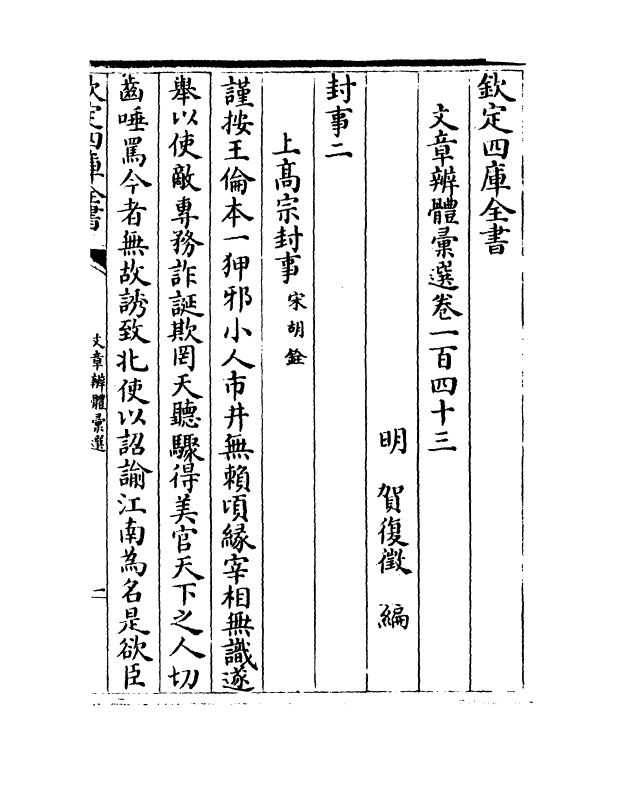 欽定四庫全書
文章辨體彙選卷一百四十三
明 賀復徵 編
封事二
上髙宗封事 宋胡銓
謹按王倫本一狎邪小人市井無賴頃緣宰相無識遂
舉以使敵專務詐誕欺罔天聽驟得美官天下之人切
齒唾罵今者無故誘致北使以詔諭江南為名是欲臣
欽定四庫全書
文章辨體彙選
一